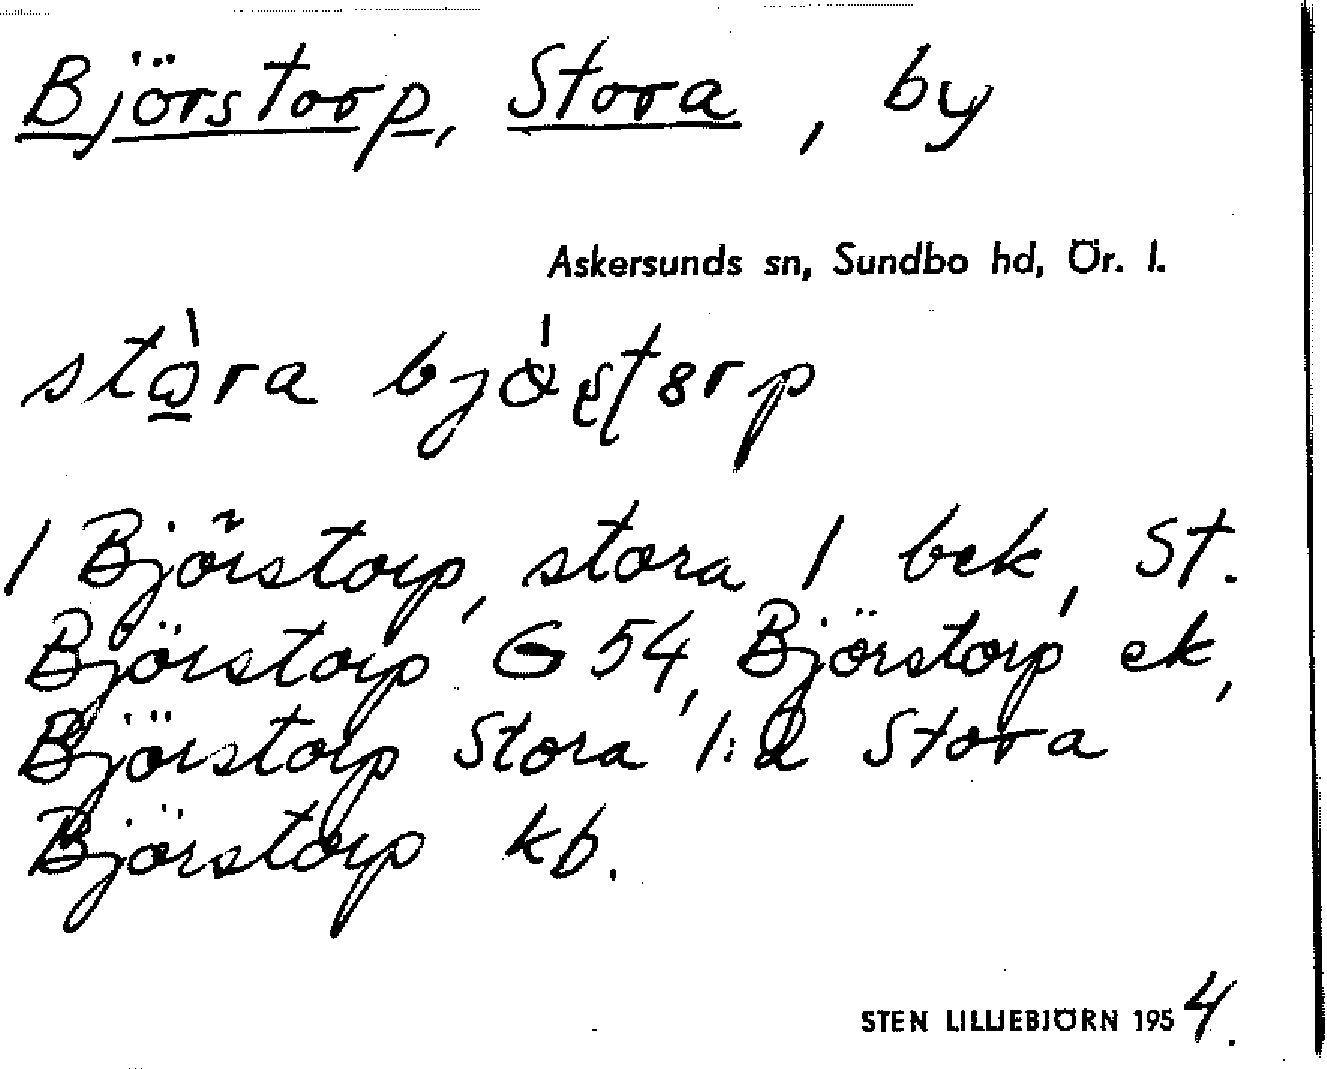 Björstorp, Stora, by
Askersunds sn, Sundbo hd, Ör. l.
stò̱ra bjö́ʂʈɵrp
/ Björstorp, stora / bek, St.
Björstorp G 54, Björstorp ek,
Björstorp Stora 1:a Stora
Björstorp kb.
STEN LILLIEBJÖRN 1954.